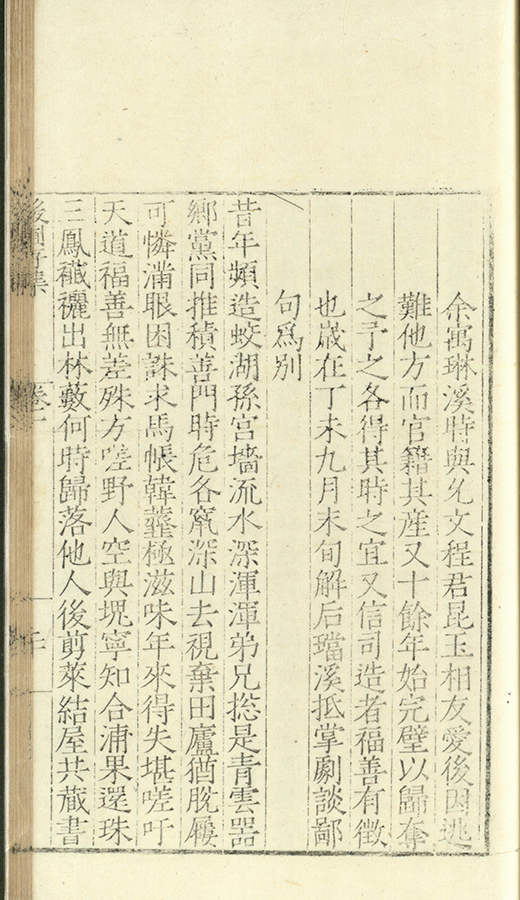 余寓琳溪時與允文程君昆玉相友愛後因逃
難他方而官籍其産又十餘年始完璧以歸奪
之予之各得其時之宜又信司造者福善有徵
也歳在丁未九月末旬解后璫溪抵掌劇談鄙
句爲别
昔年頻造蛟湖孫宫墻流水深渾渾弟兄揔是青雲器
鄉黨同推積善門時危各竄深山去視棄田廬猶脫屣
可憐滿眼困誅求馬帳韓虀極滋味年來得失堪嗟吁
天道福善無差殊方嗟野人空與塊寧知合浦果還珠
三鳳襳襹出林藪何時歸落他人後剪萊結屋共藏書
後圃存集
卷一